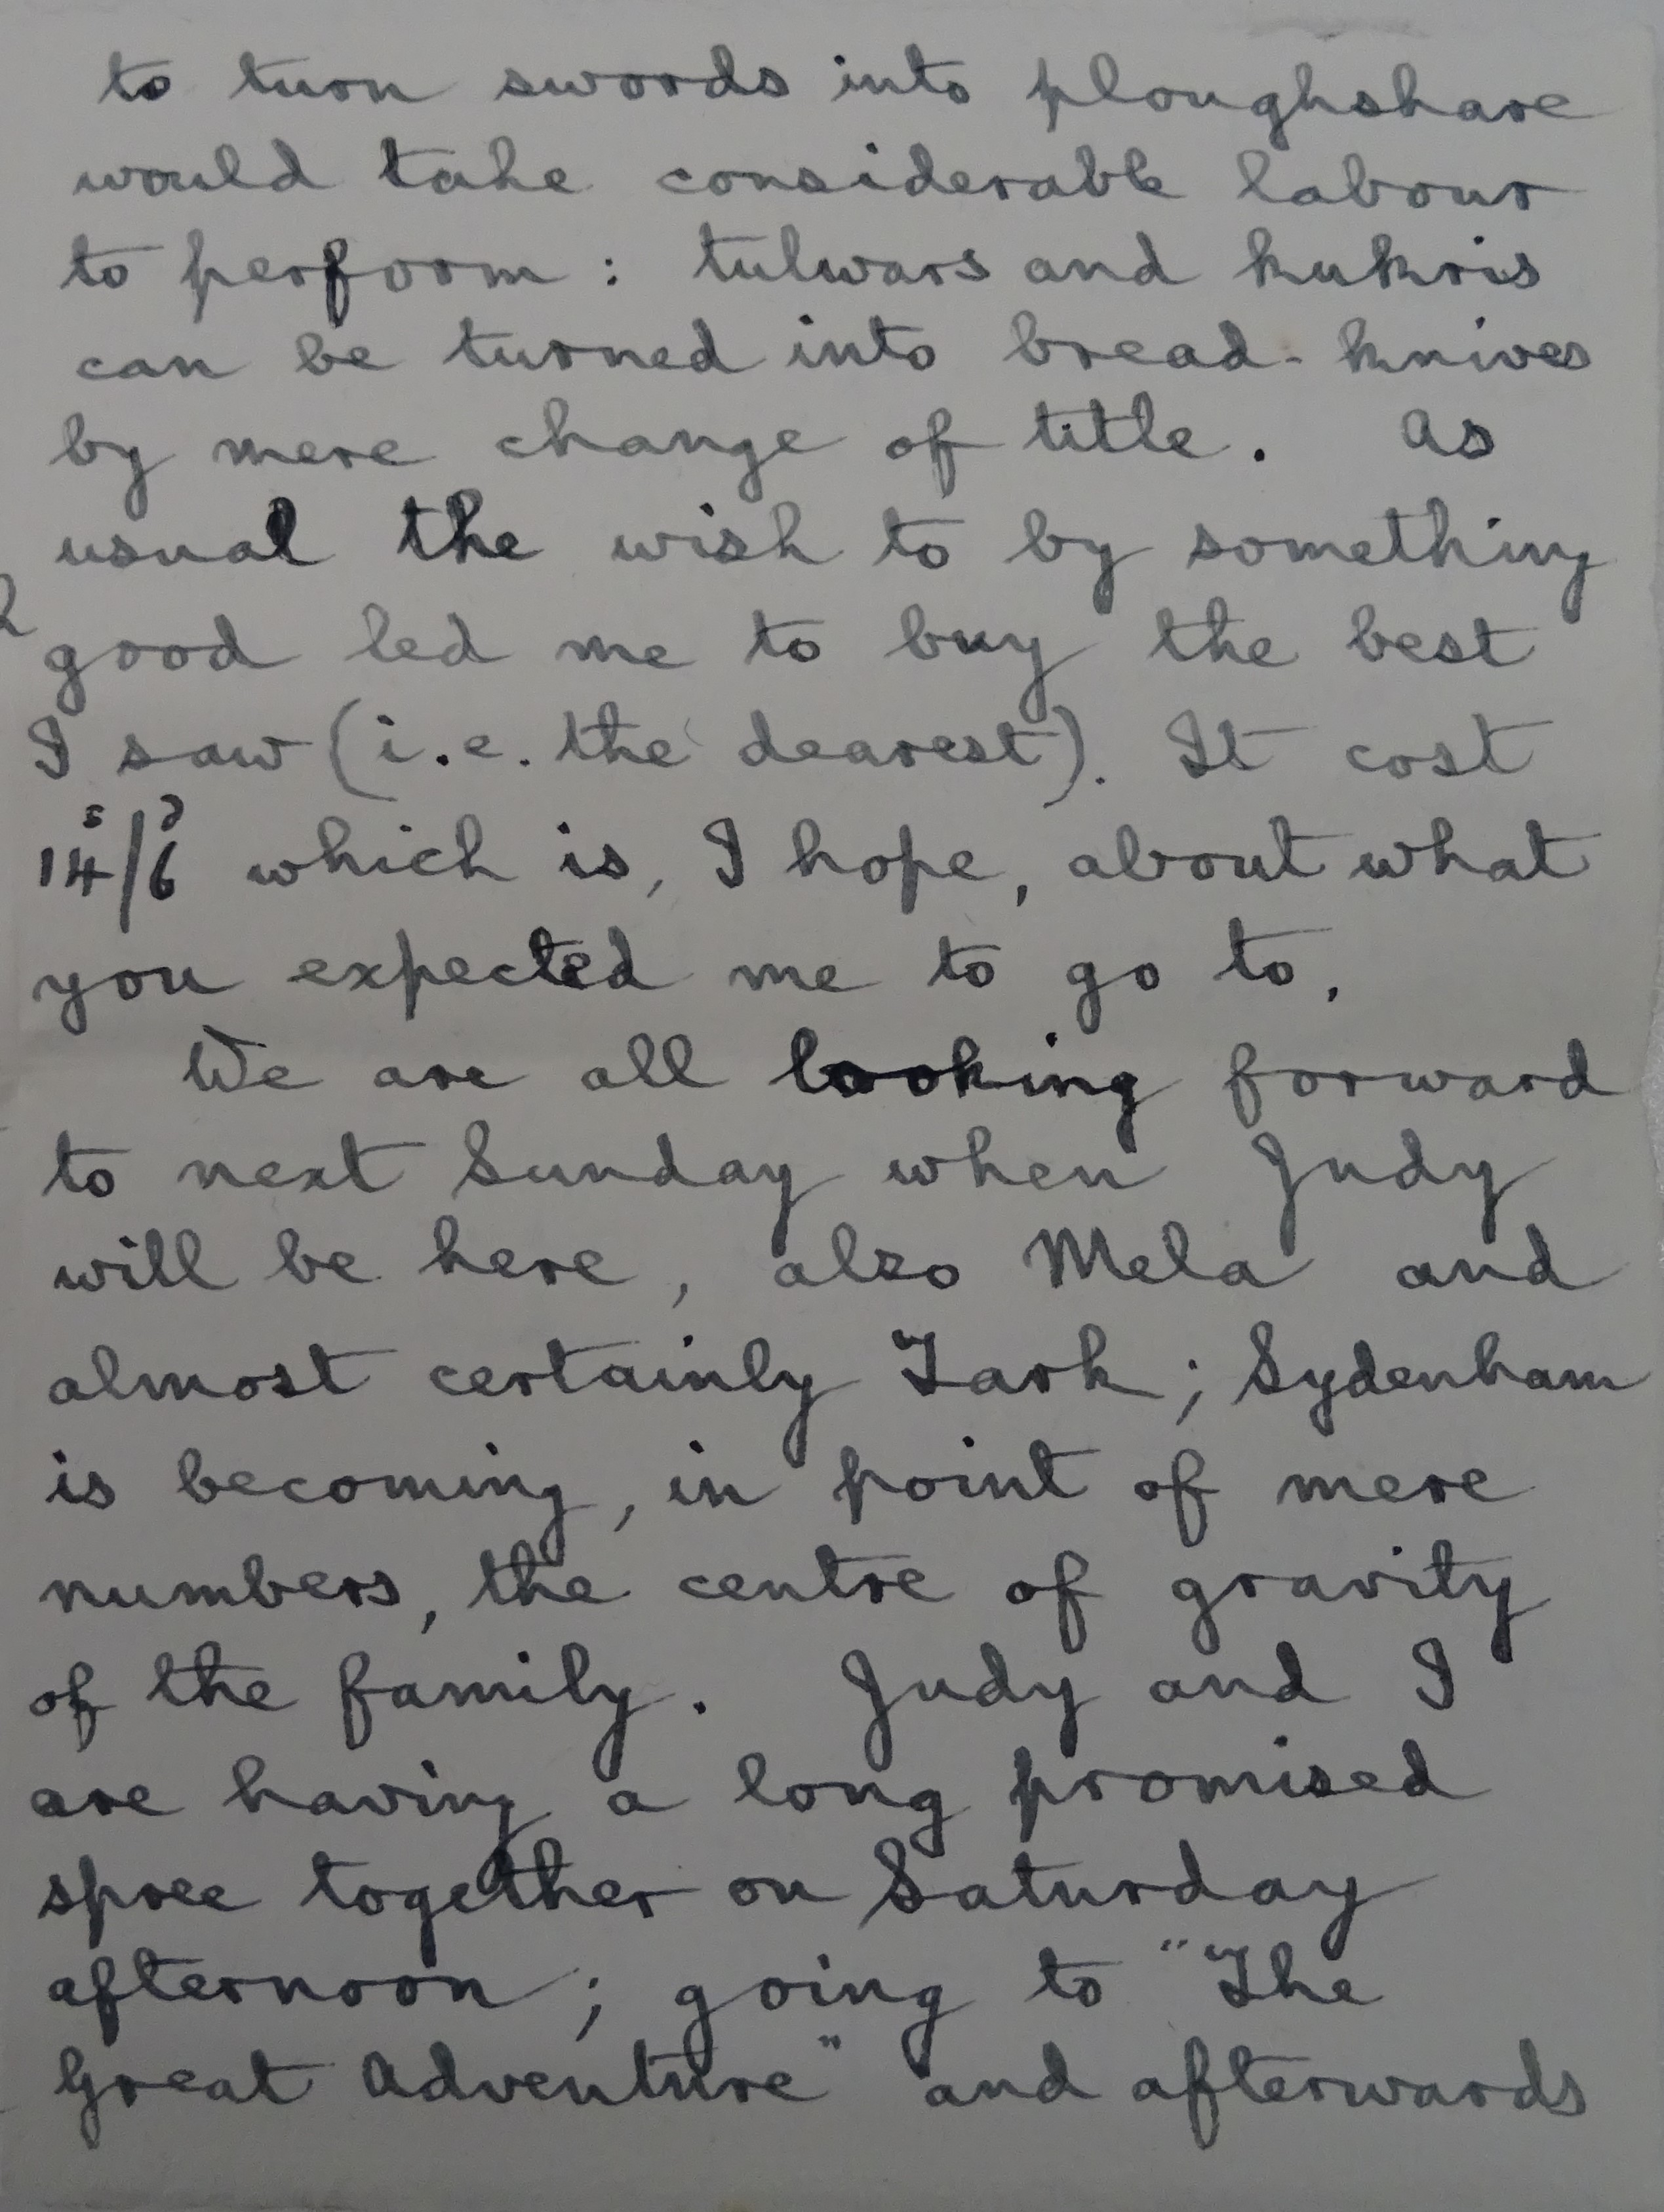 to turn swords into ploughshare
would take considerable labour
to perform : tulwars and kukris
can be turned into bread-knives
by mere change of title. As
usual the wish to by something
good led me to buy the best
I saw (i.e. the dearest). It cost
14s/6d which is, I hope, about what
you expected me to go to.
We are all looking forward
to next Sunday when Judy
will be here, also Mela and
almost certainly Tark; Sydenham
is becoming, in point of mere
numbers, the centre of gravity
of the family. Judy and I
are having a long promised
spree together on Saturday
afternoon; going to "The
Great Adventure" and afterwards